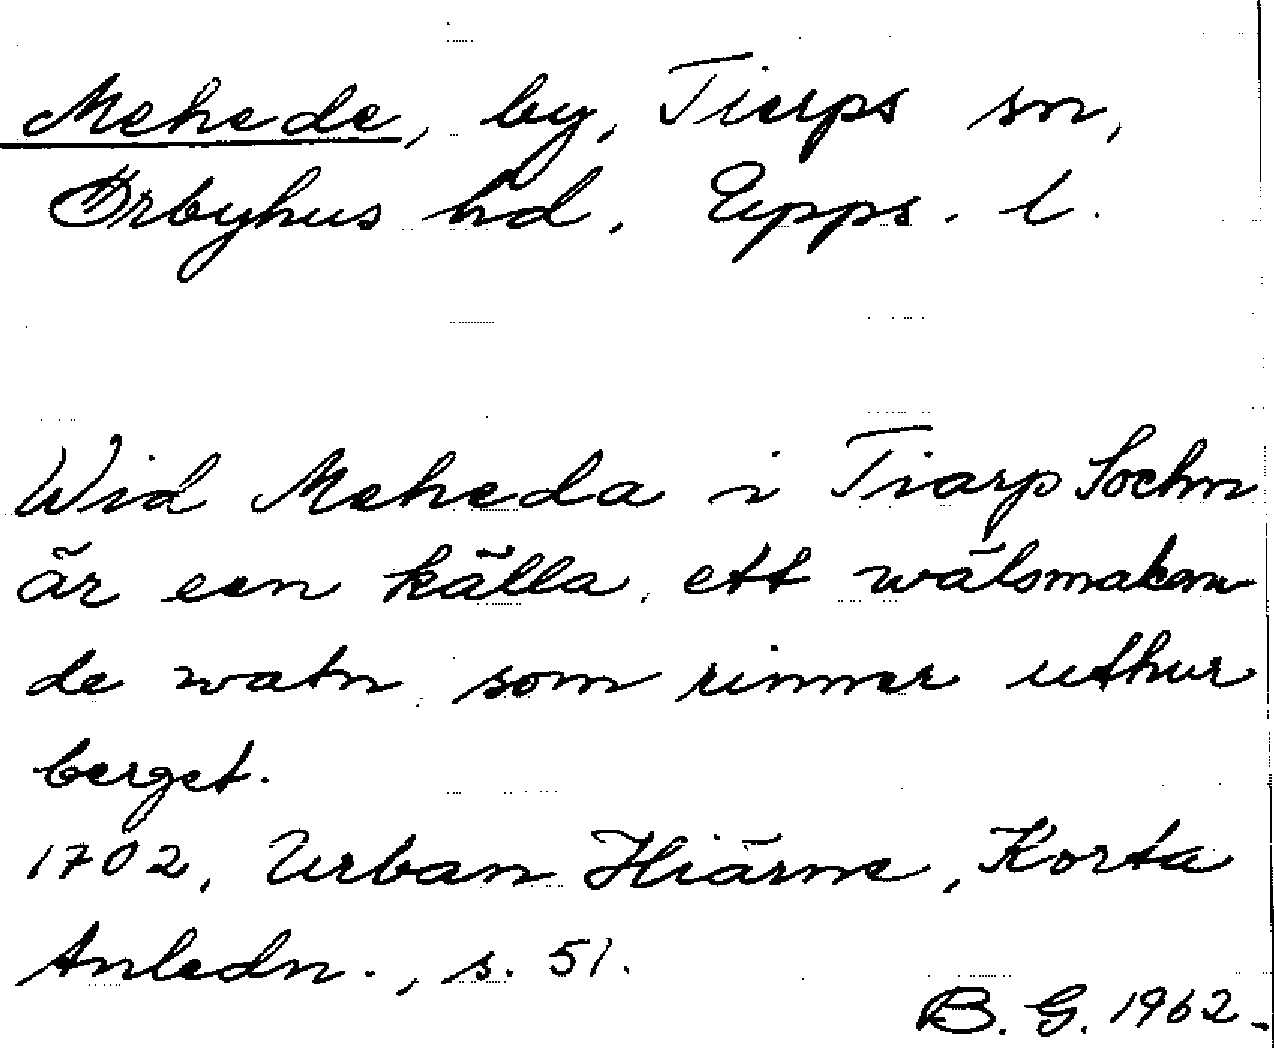 Mehede, by, Tierps sn,
Örbyhus hd, Upps. l.
Wid Meheda i Tiarp Sochn
är een källa, ett wälsmakan
de watn som rinner uthur
berget.
1702, Urban Hiärne, Korta
Anledn., s. 51.
B. G. 1962.